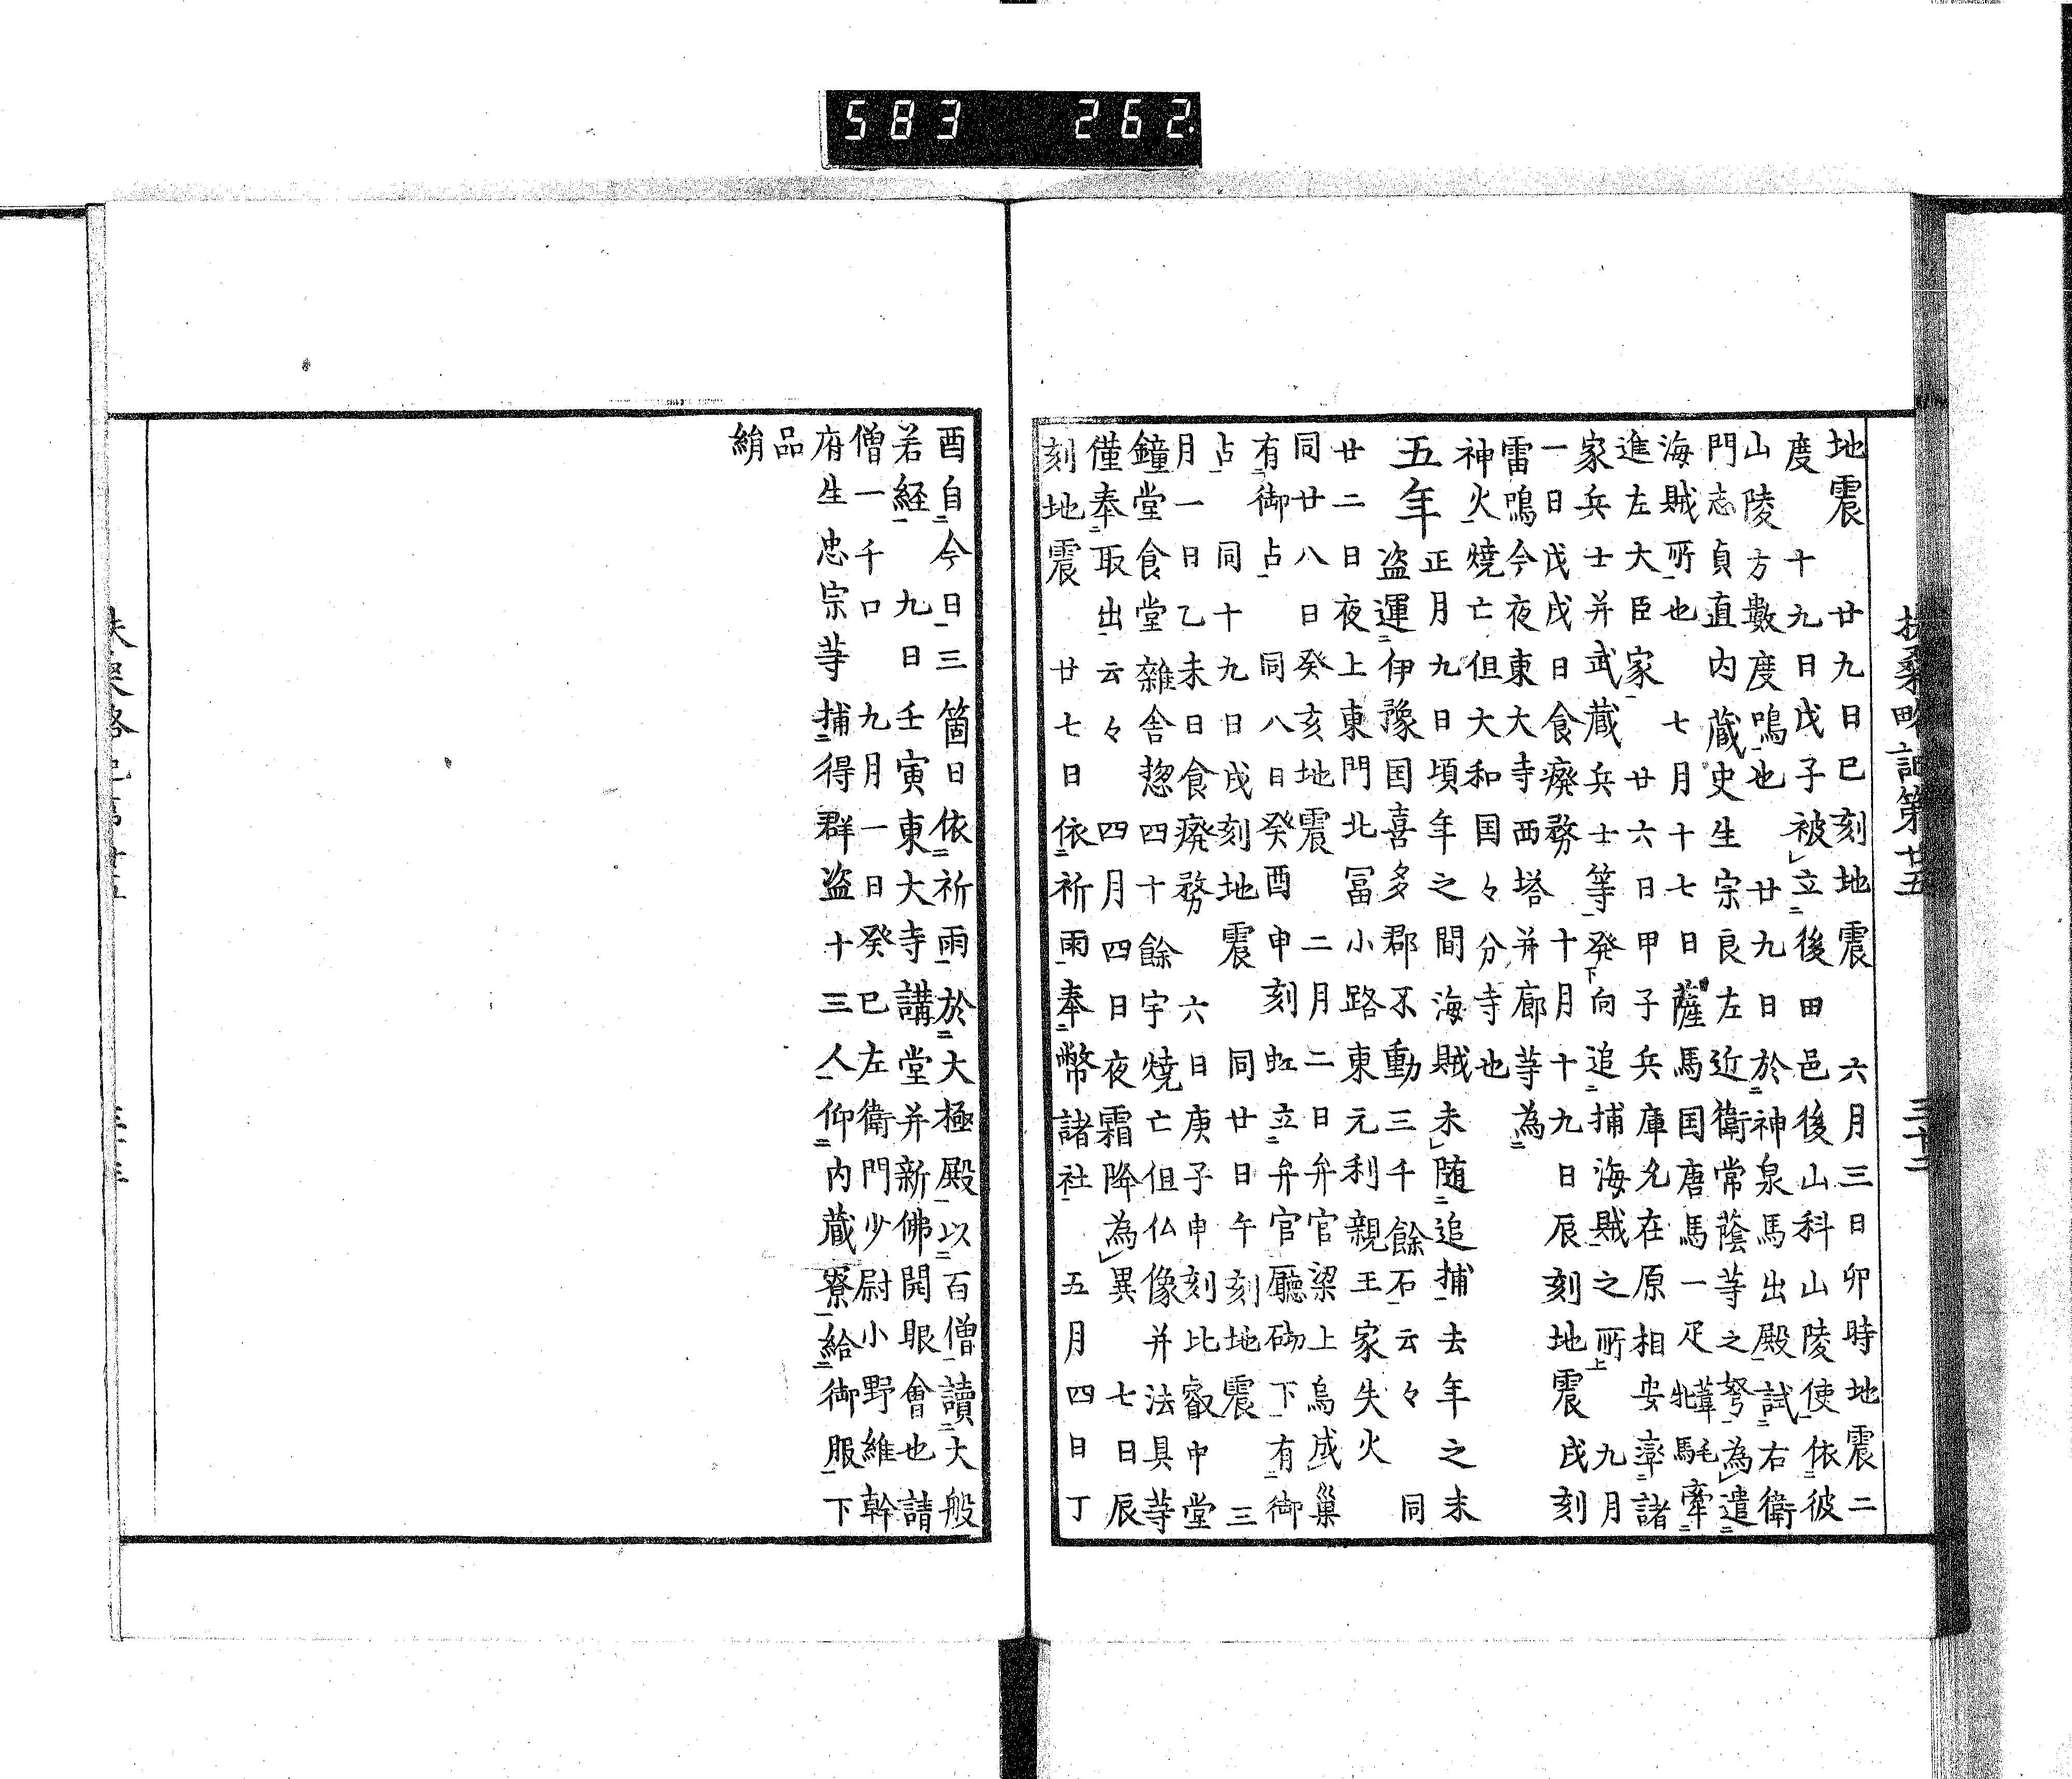 583 262
扶桑略記第廿五 三十二
地震 廿九日巳刻地震 六月三日卯時地震二
度 十九日戊子被立後田邑後山科山陵使依彼
山陵方數度鳴也 廿九日於神泉馬出殿試右衛
門志貞直内蔵史生宗良左近衛常蔭等之弩為遣
海賊所也 七月十七日薩馬国唐馬一疋牝葦毛馬牽
進左大臣家 廿六日甲子兵庫允在原相安率諸
家兵士并武蔵兵士等発向追捕海賊之所 九月
一日戊戌日食癈務 十月十九日辰刻地震戌刻
雷鳴今夜東大寺西塔并廊等為
神火焼亡但大和国々分寺也
五年 正月九日頃年之間海賊未随追捕去年之末
盗運伊豫国喜多郡不動三千餘石云々 同
廿二日夜上東門北冨小路東元利親王家失火
同廿八日癸亥地震 二月二日弁官梁上烏成巣
有御占 同八日癸酉申刻虹立弁官廳砌下有御
占 同十九日戌刻地震 同廿日午刻地震 三
月一日乙未日食癈務 六日庚子申刻比叡中堂
鐘堂食堂雜舎惣四十餘宇焼亡但仏像并法具等
僅奉取出云々 四月四日夜霜降為異 七日辰
刻地震 廿七日依祈雨奉幣諸社 五月四日丁
酉自今日三箇日依祈雨於大極殿以百僧讀大般
若経 九日壬寅東大寺講堂并新佛開眼會也請
僧一千口 九月一日癸巳左衛門少尉小野維幹
府生忠宗等捕得群盗十三人仰内蔵寮給御服下
品
絹